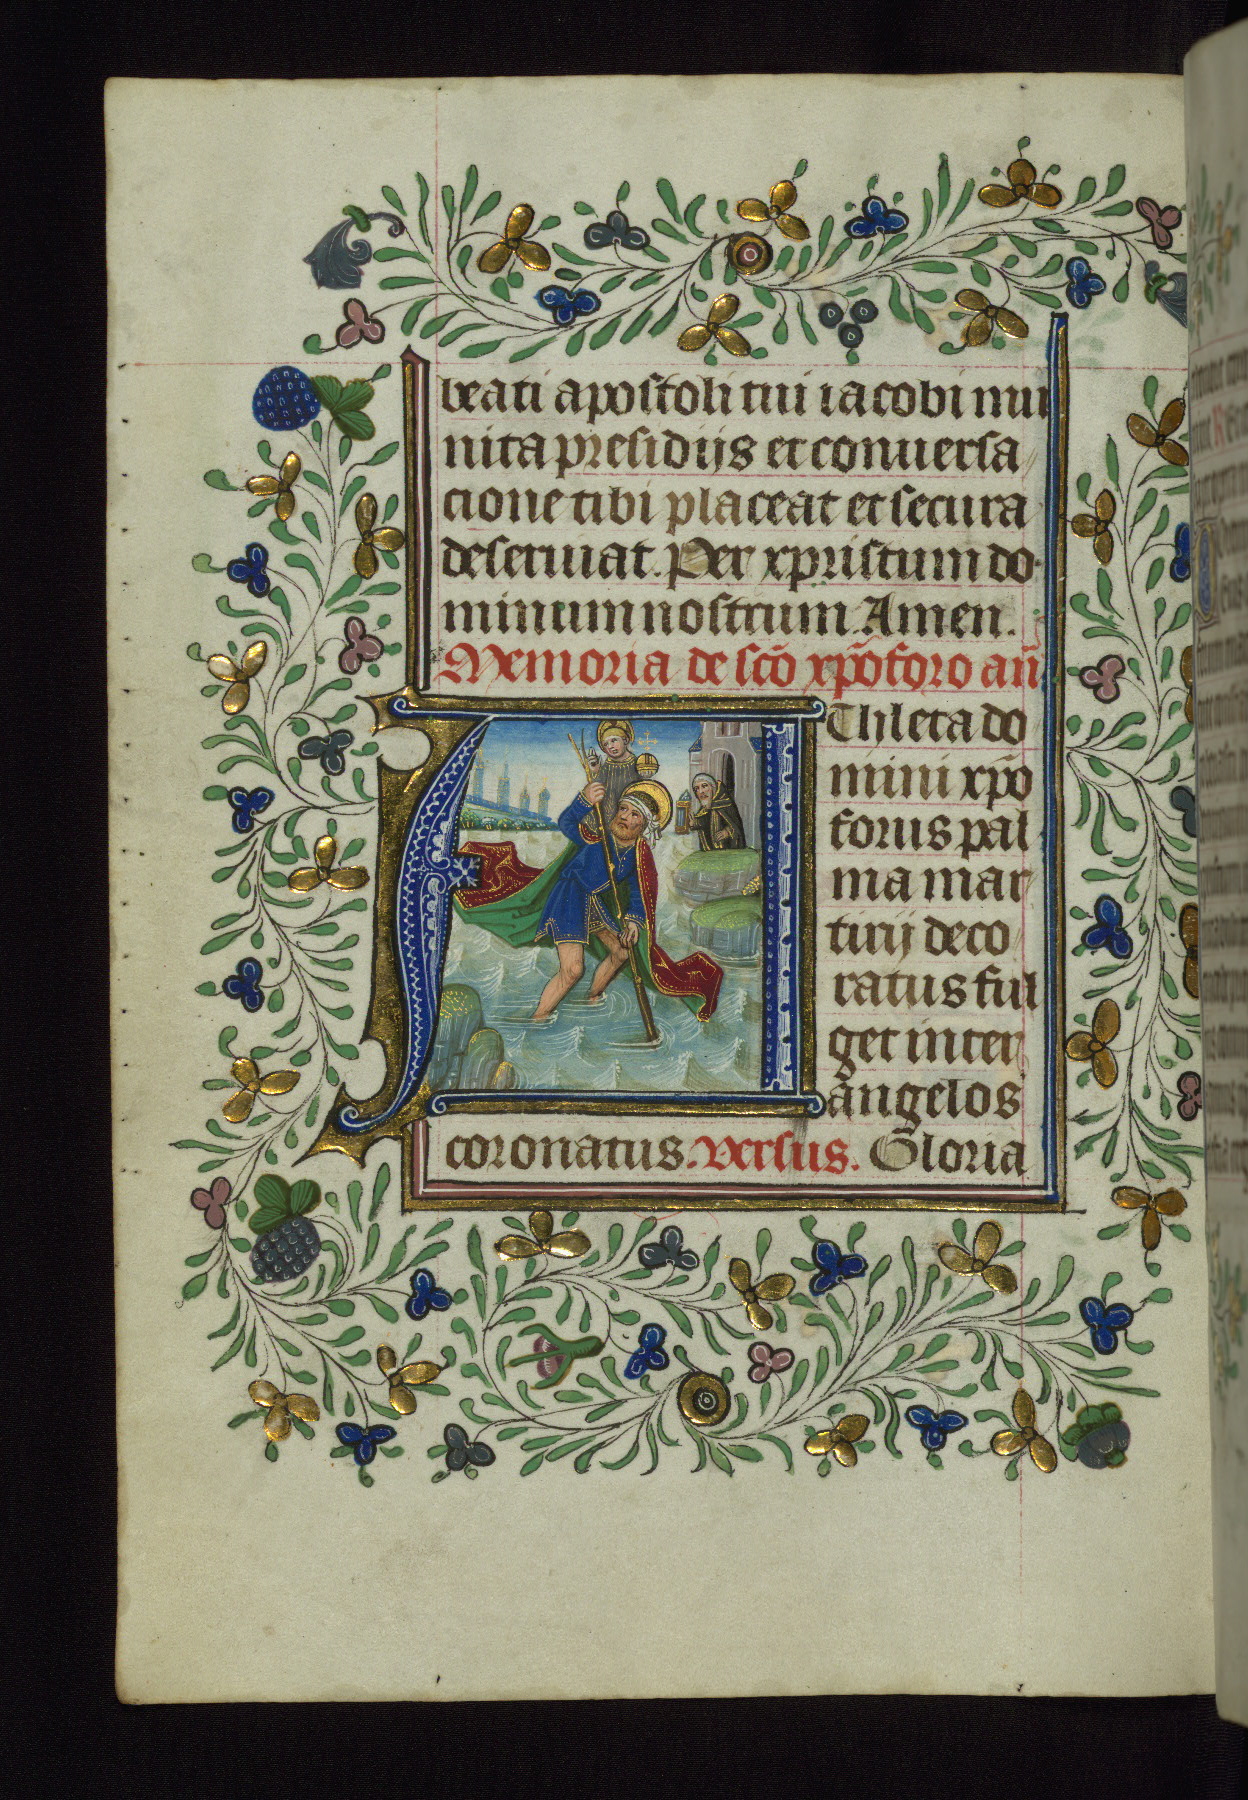 beati apostoli tui iacobi mu
nita presidijs et conuersa
cione tibi placeat et secura
deseruiat. Per xpristum do
minum nostrum. Amen.
Memoria de scō xpōforo añ
Athleta do
mini xpō
forus pal
ma mar
tirij deco
ratus ful
get inter
angelos
coronatus. versus. Gloria